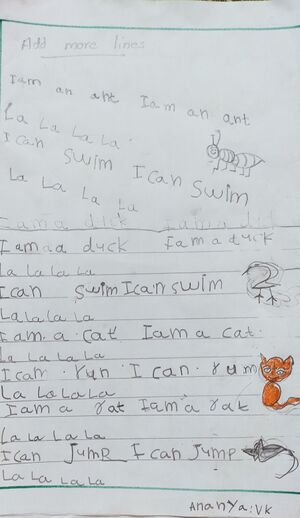 Add more lines
I am an ant I am an ant
La La La La
I can swim I can swim
La La La La
I am a dick I am a
I amaa duck I am a duck
La La La La
I can swim I can swim
La La La La
I am a cat I am a cat.
La La La La
I can run I can run
La La La La
I am a rat I am a rat
La La La La
I can Jump I can Jump
La La La La
Ananya.VK